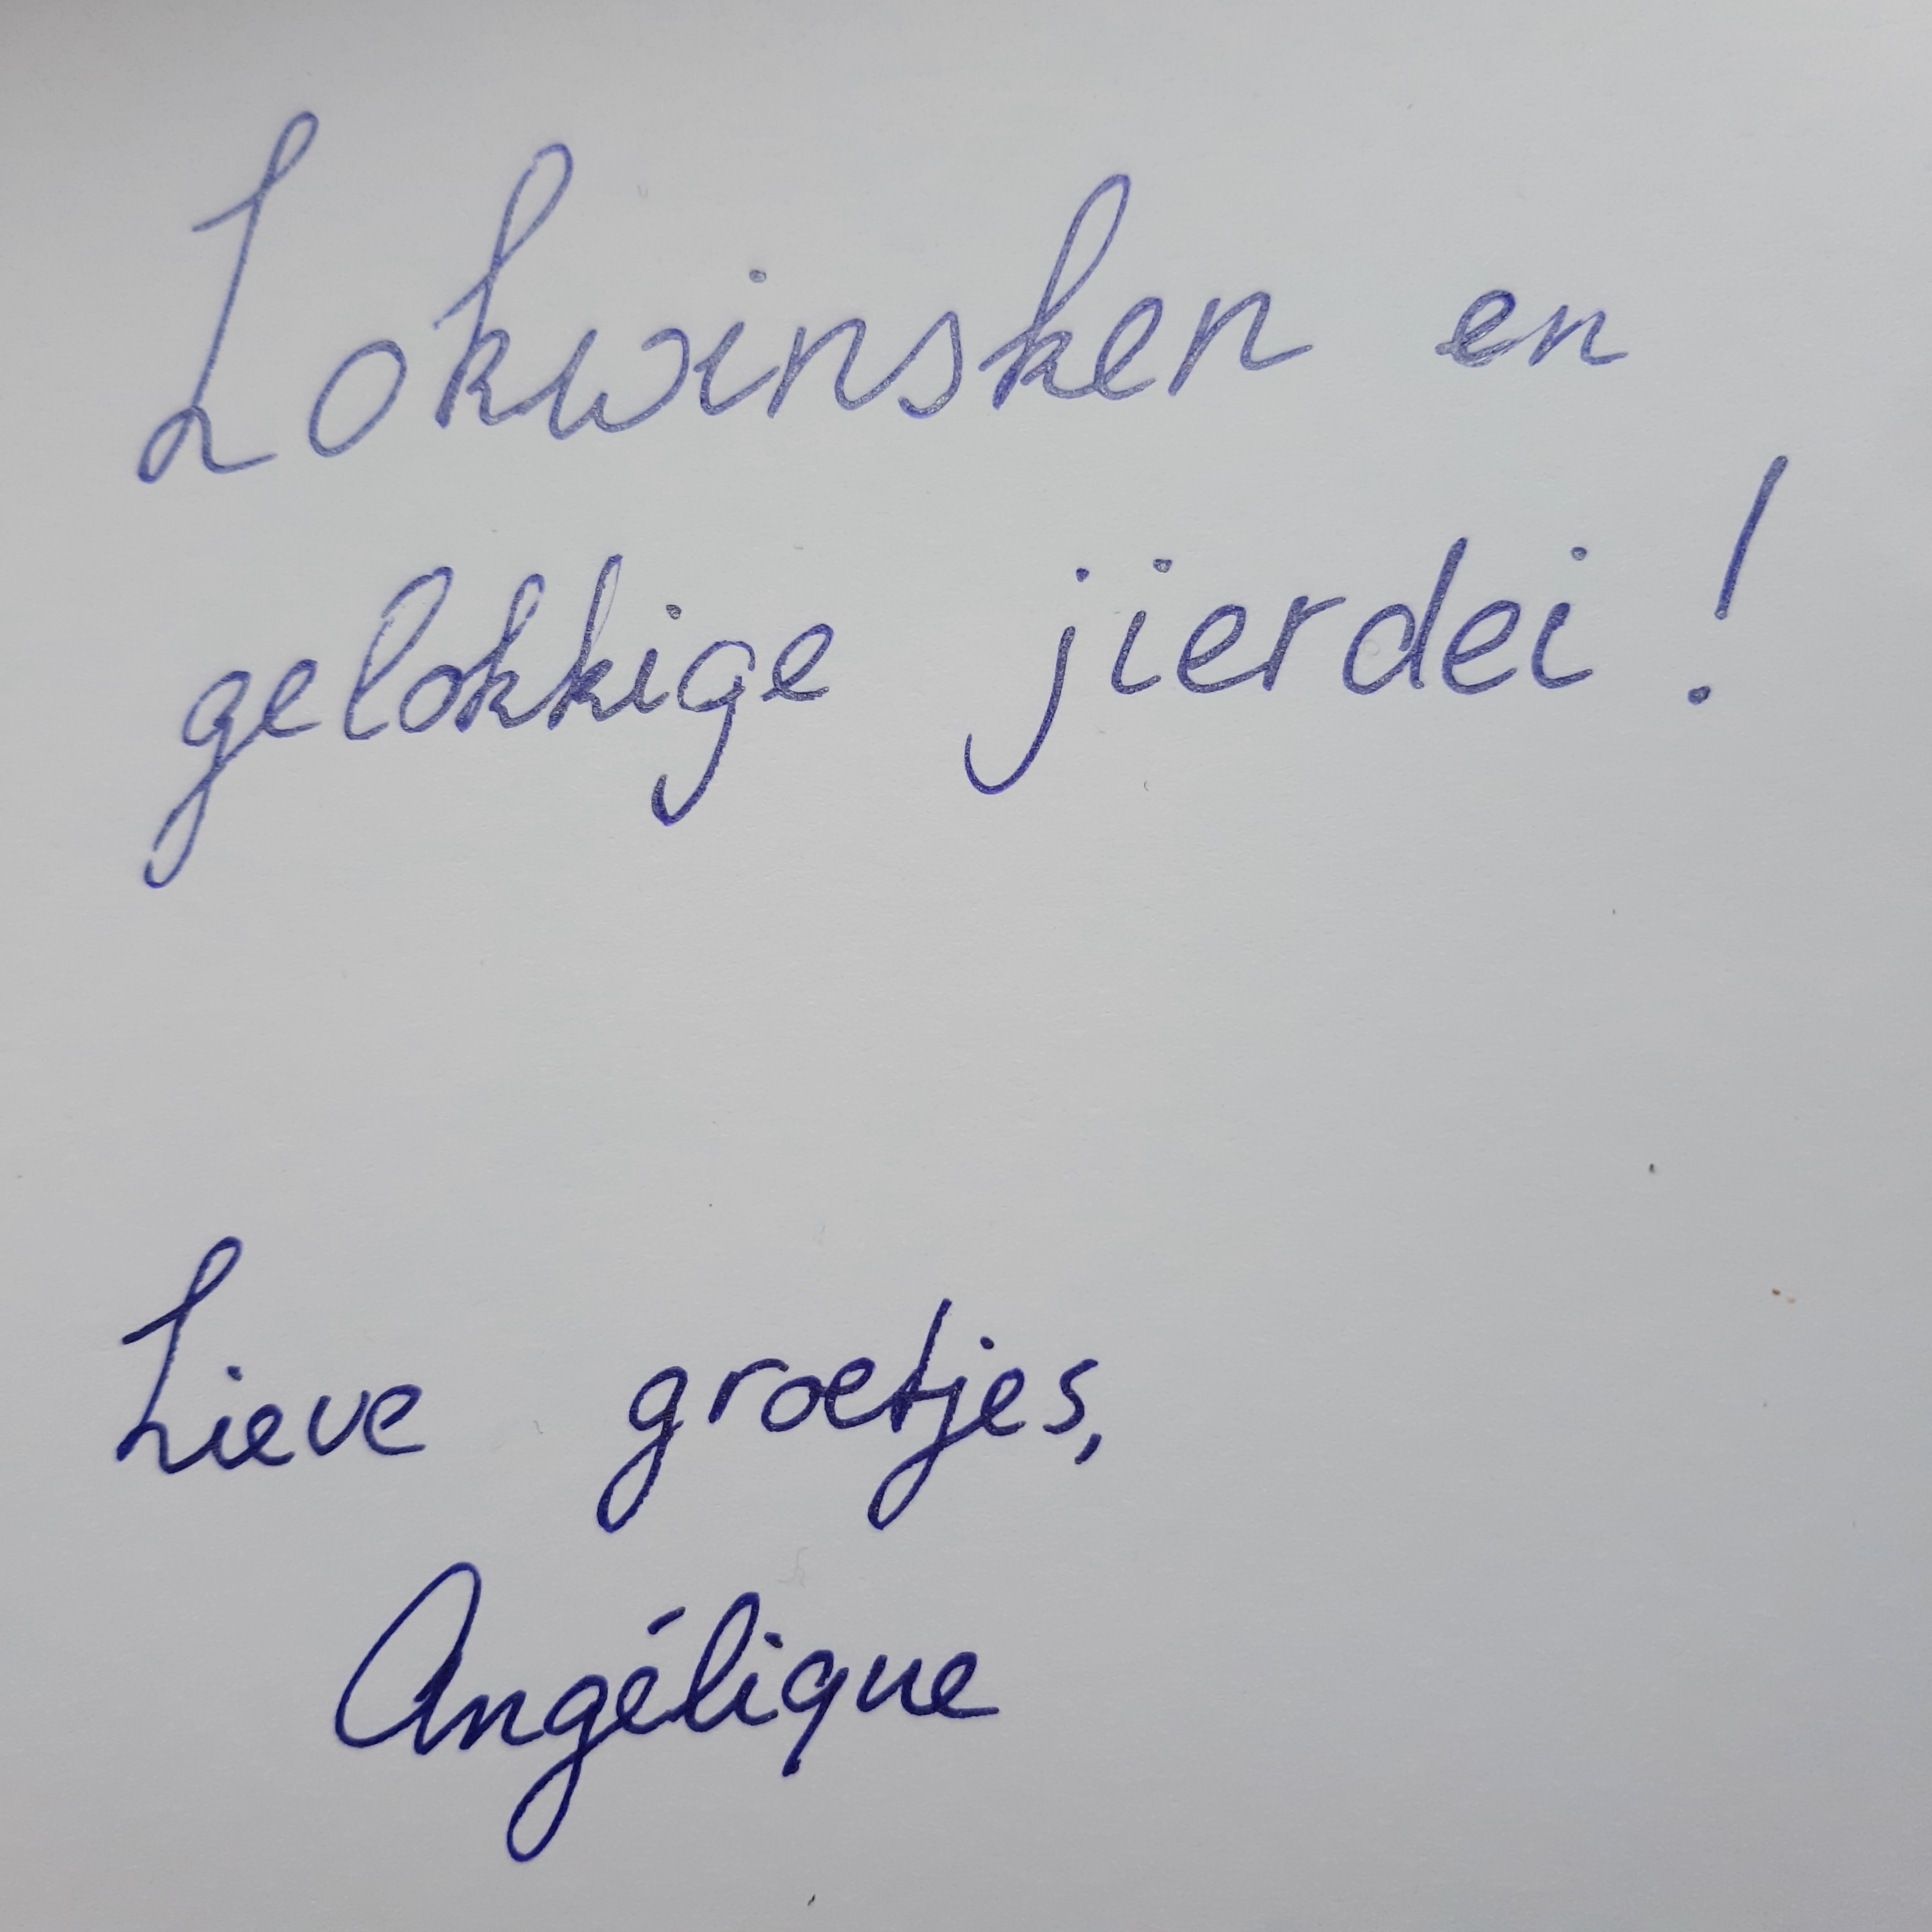 Lokwinsken en
gelokkige jierdei!
Lieve groetjes,
Angélique